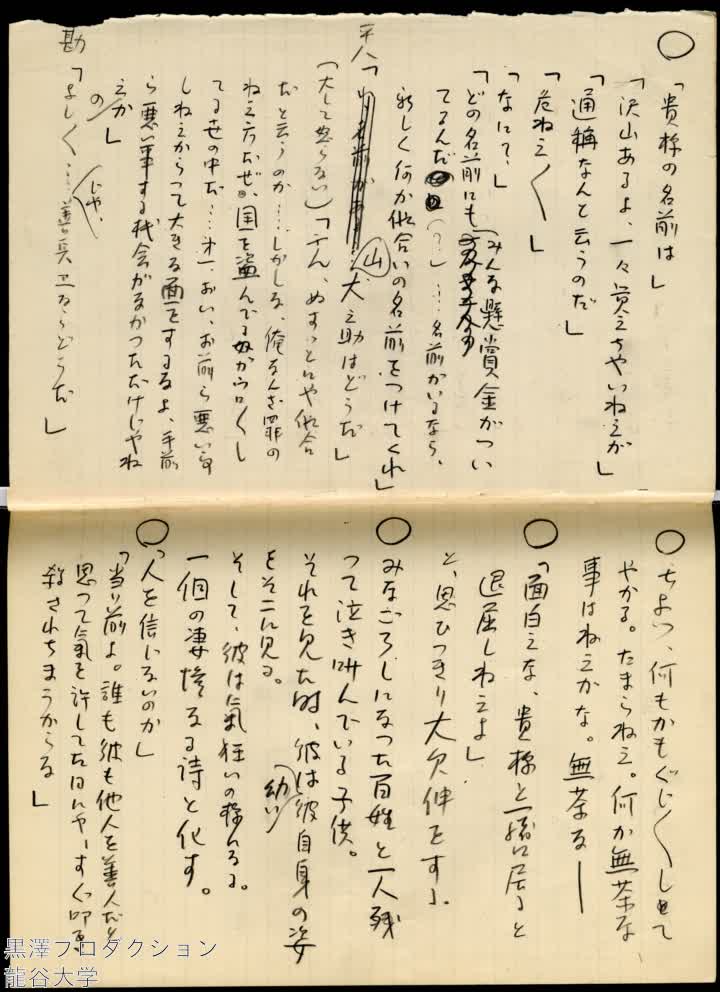 ○
「貴様の名前は」
「沢山あるよ、一々覚えちやいねえが」
「通稱なんと云うのだ」
「危ねえ〱」
「なにて、」
「どの名前にも(みんな懸賞金がつい
てるんだ (?)」…名前がいるなら、
新しく何か似合いの名前をつけてくれ」
平八「山犬之助はどうだ」
(大して怒らない)「ふん、ぬすっとにや似合
だと云うのか…しかしな、俺なんざ罪の
ねえ方だぜ。国を盗んでる奴がウロ〱し
てる世の中だ…オー、おい、お前ら悪い事
しねえからって大きな面をするなよ、手前
ら悪い事する機会がなかつただけじやね
えか」
のじや、
勘「よし〱…善兵卫ならどうだ」
○
ちよつ、何もかもぐじ〱しとて
やがる。たまらねえ。何か無茶な
事はねえかな。無茶な――
○
「面白えな、貴様と一緒に居ると
退屈しねえよ」
と、思ひつきり大欠伸をする。
○
みなごろしになつた百姓と一人残
つて泣き叫んでいる子供。
それを見た時、彼は彼自身の(幼い)姿
をそこに見る。
そして、彼は氣狂いの様になる。
一個の凄惨なる詩と化す。
○
「人を信じないのか」
「当り前よ。誰も彼も他人を善人だと
思つて氣を許してた日にや、すぐ
殺されちまうからな」
黒澤プロダクション
龍谷大学